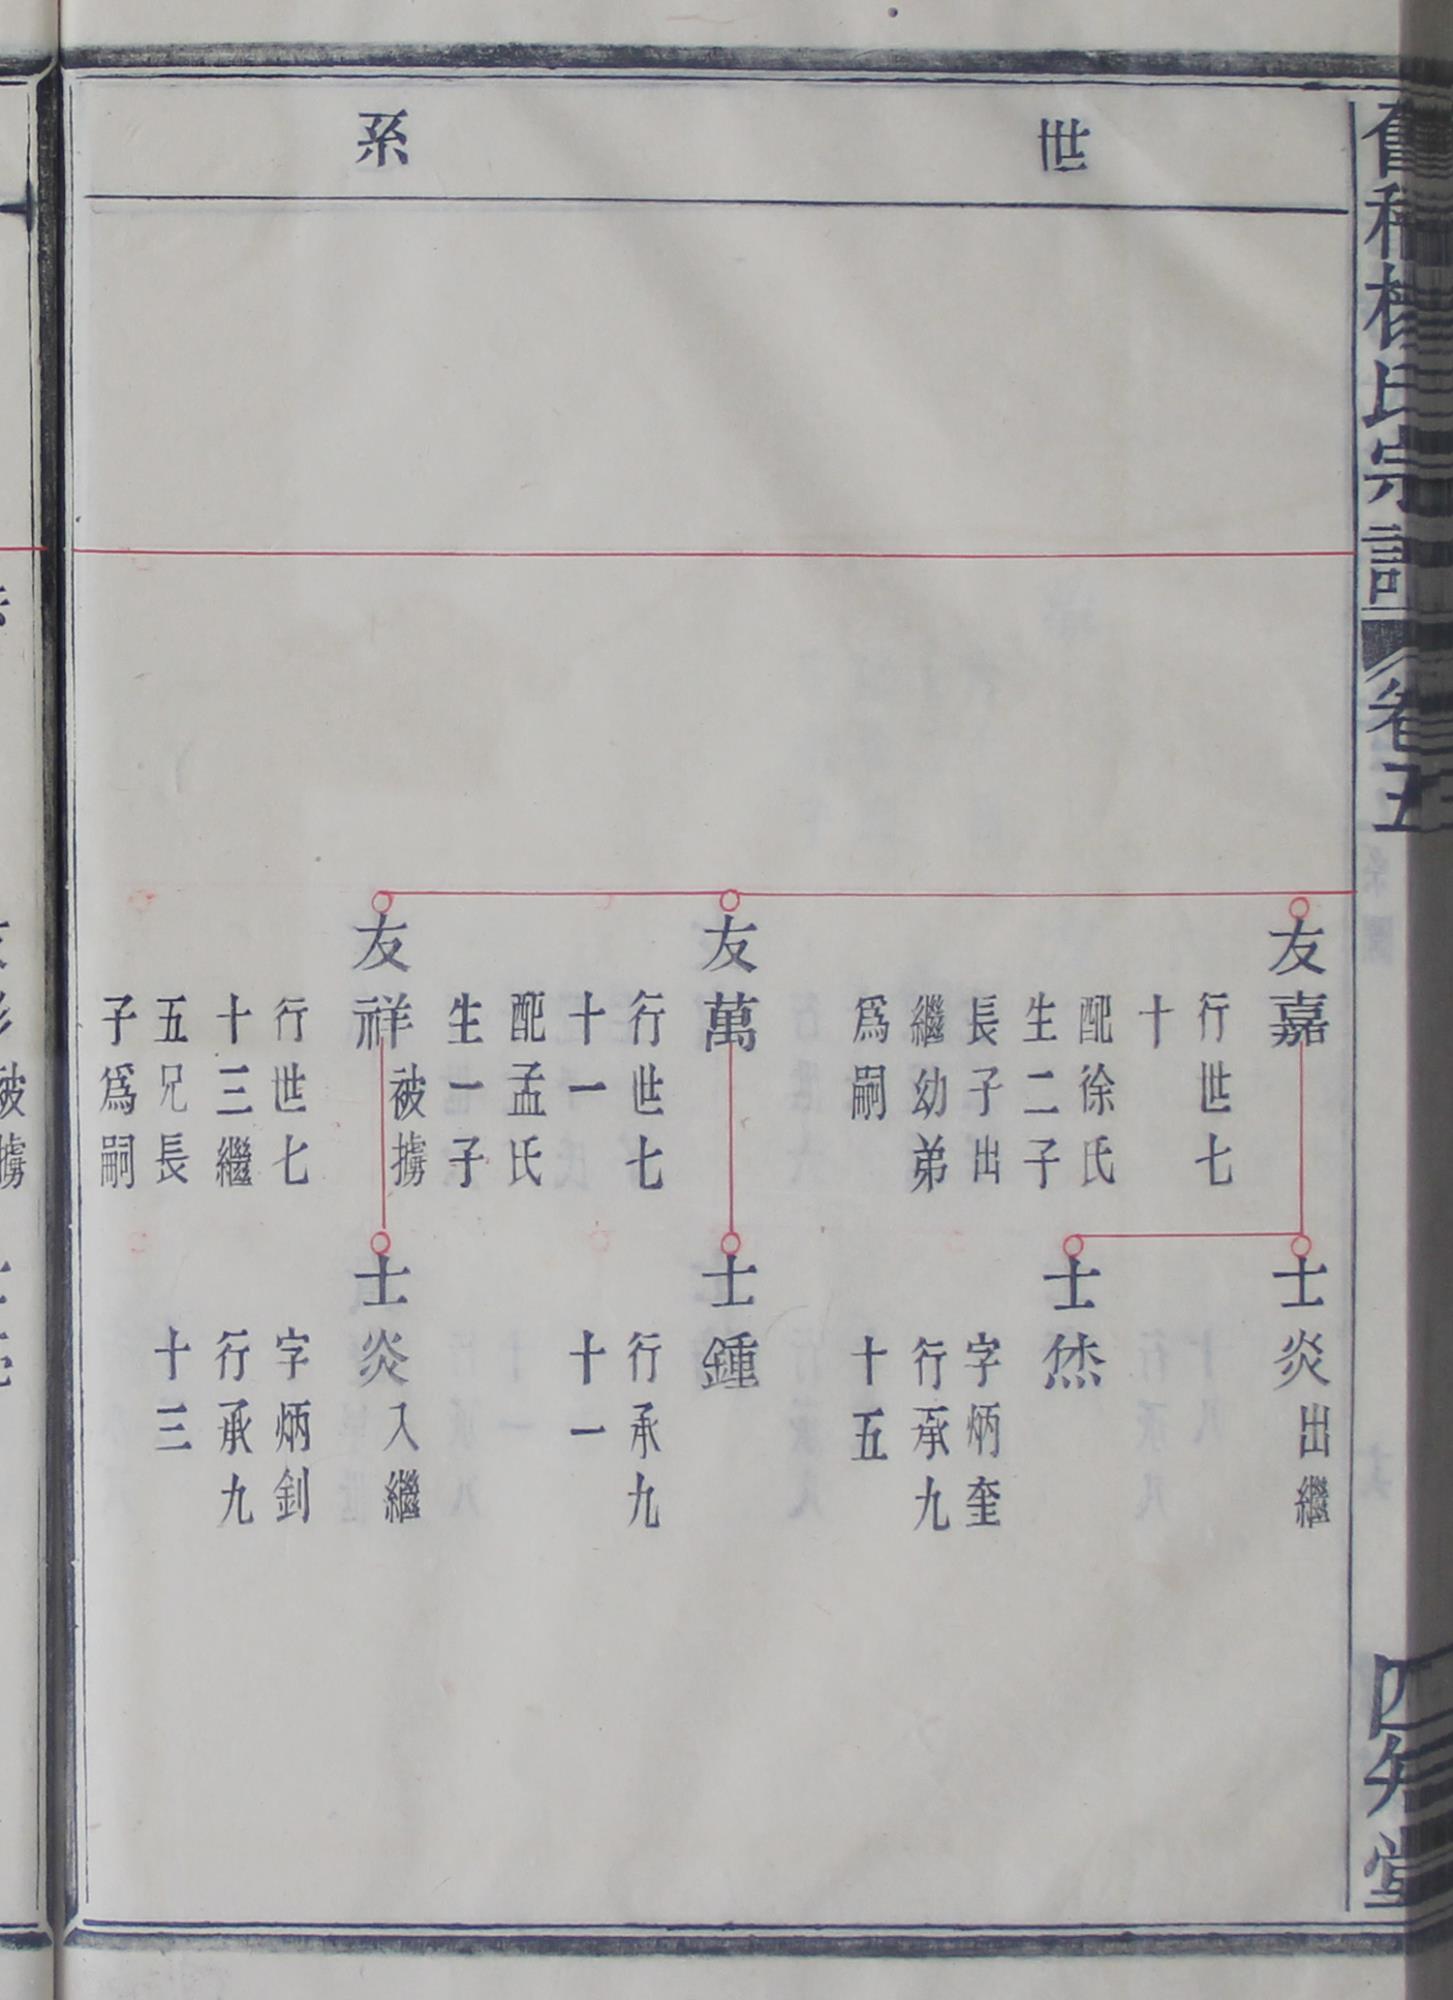 世系
友嘉
行世七
十
配徐氏
生二子
長子出
繼幼弟
爲嗣
友萬
行世七
十一
配孟氏
生一子
友祥被擄
行世七
十三繼
五兄長
子爲嗣
士炎出繼
士烋
字炳奎
行承九
十五
士鍾
行承九
十一
士炎入繼
字炳釗
行承九
十三
氏宗譜
卷五
四知堂